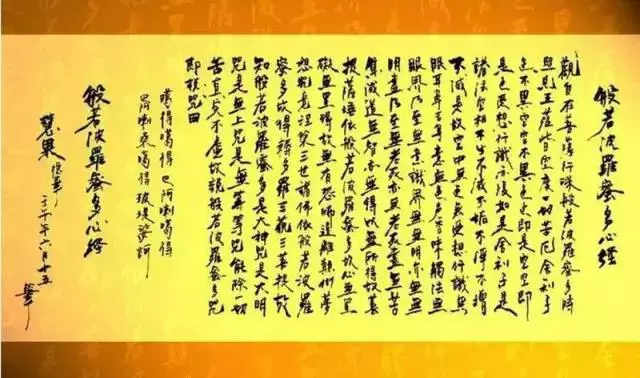 般若波羅蜜多心經
觀自在菩薩行深般若波羅蜜多時
照見五蘊皆空度一切苦厄舍利子
色不異空空不異色色即是空空即
是色受想行識亦復如是舍利子是
諸法空相不生不滅不垢不淨不增
不減是故空中無色無受想行識無
眼耳鼻舌身意無色聲香味觸法無
眼界乃至無意識界無無明亦無無
明盡乃至無老死亦無老死盡無苦
集滅道無智亦無得以無所得故菩
提薩埵依般若波羅蜜多故心無罣
礙無罣礙故無有恐怖遠離顛倒夢
想究竟涅槃三世諸佛依般若波羅
蜜多故得耨多羅三藐三菩提故
知般若波羅蜜多是大神咒是大明
咒是無上咒是無等等咒能除一切
苦真實不虛故說般若波羅蜜多咒
即說咒曰
噶得噶得巴阿喇噶得
阿喇桑噶得玻堤娑訶
般若波羅蜜多心經
慧果
二千年六月十五